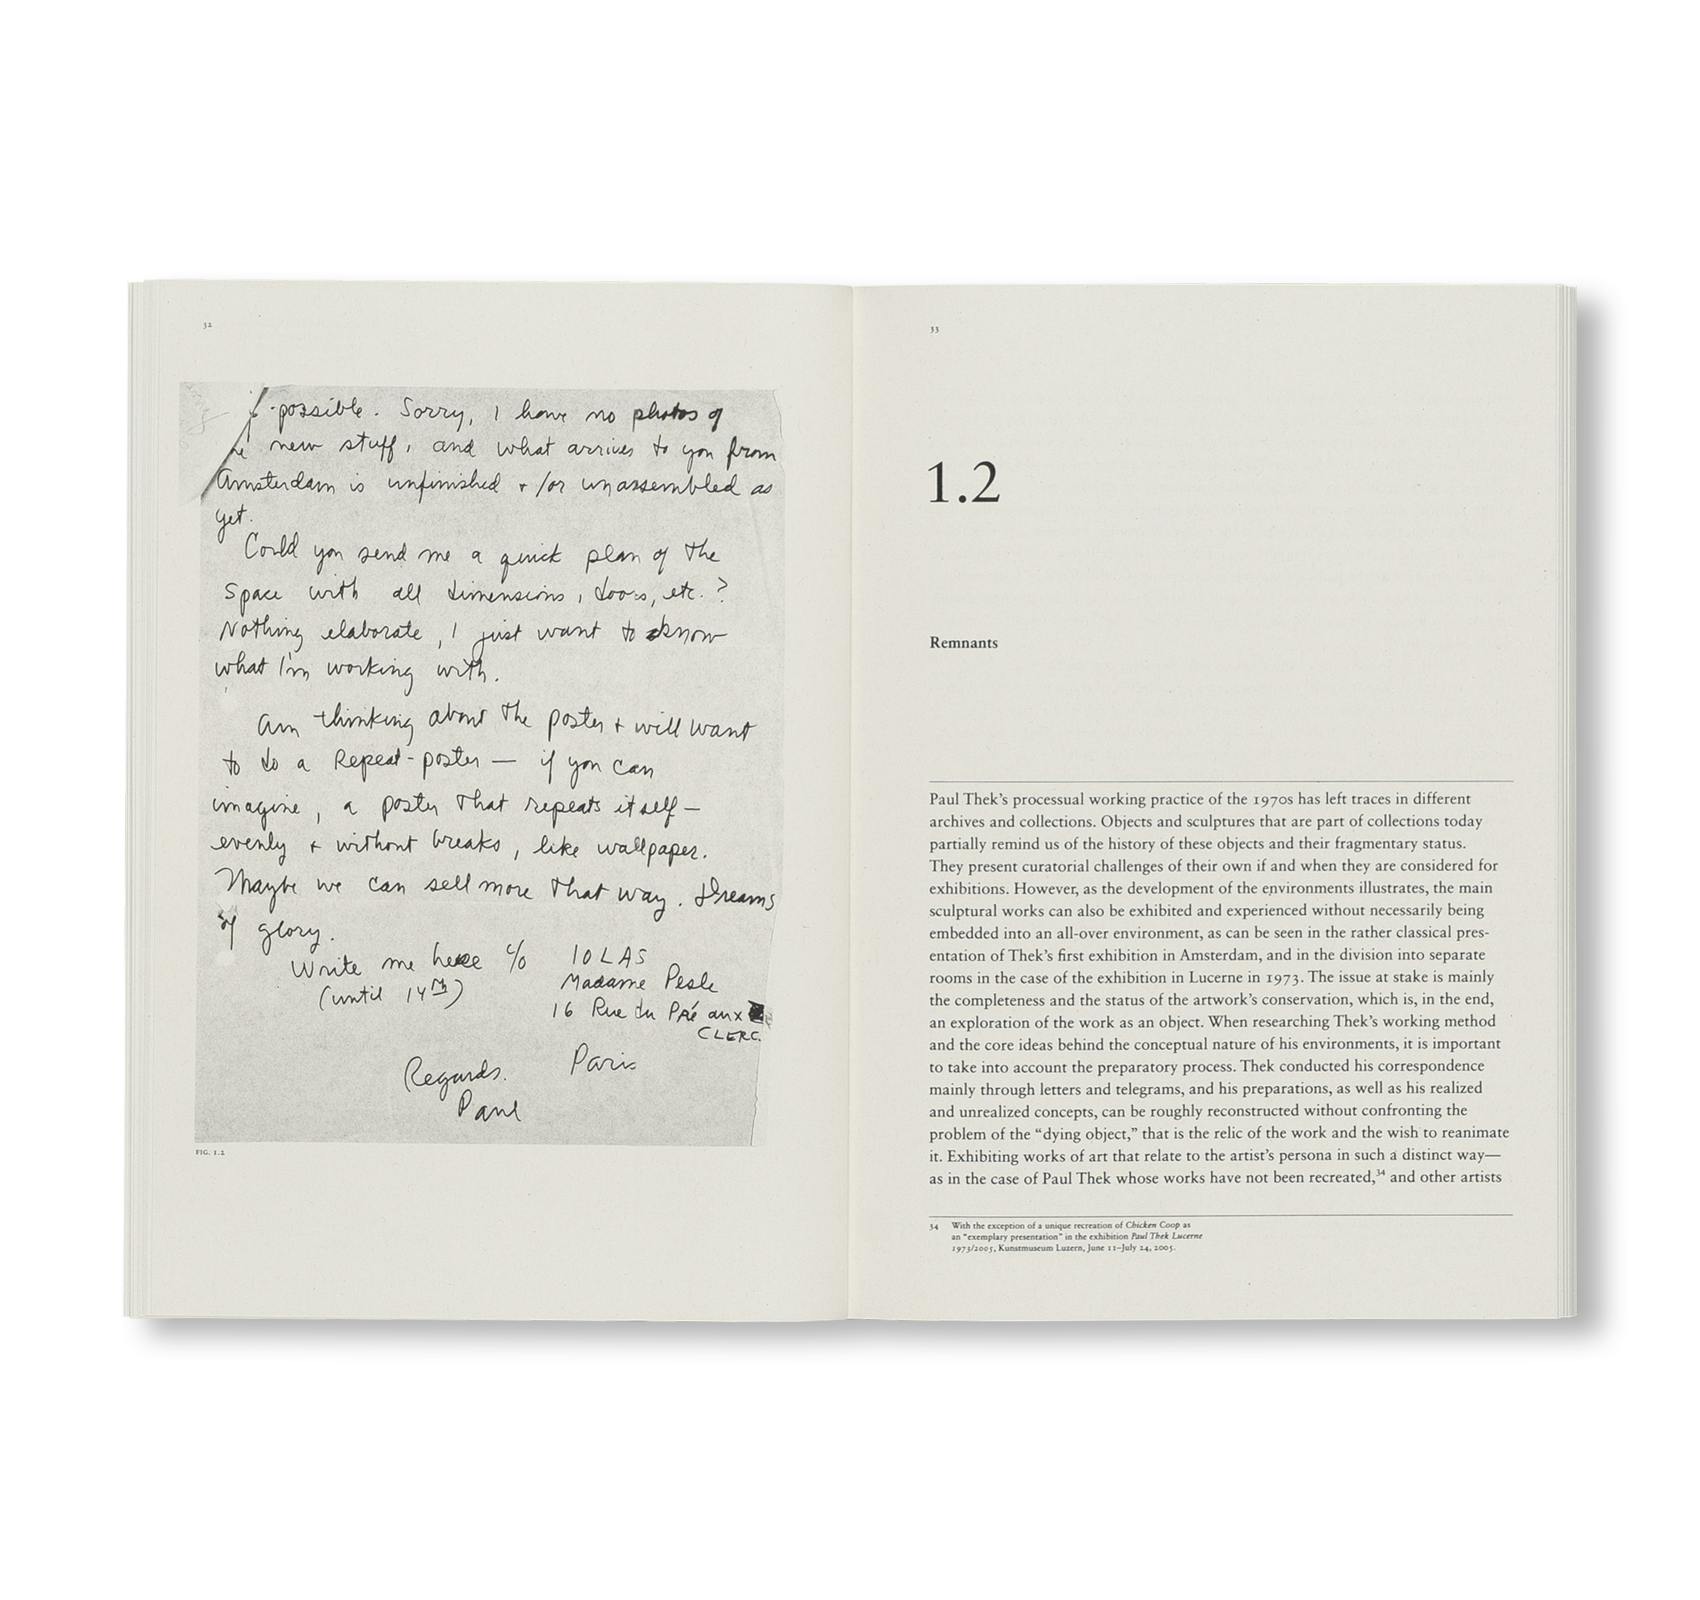 32
possible. Sorry, I have no photos of
new stuff, and what arrives to you from
Amsterdam is unfinished + /or unassembled as
yet.
Could you send me a quick plan of the
space with all dimensions, doors, etc.?
Nothing elaborate, I just want to know
what I'm working with.
Am thinking about the poster + will want
to do a Repeat-poster — if you can
imagine, a poster that repeats itself —
evenly + without breaks, like wallpaper.
Maybe we can sell more that way. Dreams
of glory.
Write me here c/o IOLAS
(until 14th) Madame Pesle
16 Rue du Pré aux
CLERC.
Paris
Regards.
Paul
FIG. 1.2
33
1.2
Remnants
Paul Thek’s processual working practice of the 1970s has left traces in different
archives and collections. Objects and sculptures that are part of collections today
partially remind us of the history of these objects and their fragmentary status.
They present curatorial challenges of their own if and when they are considered for
exhibitions. However, as the development of the environments illustrates, the main
sculptural works can also be exhibited and experienced without necessarily being
embedded into an all-over environment, as can be seen in the rather classical pres-
entation of Thek’s first exhibition in Amsterdam, and in the division into separate
rooms in the case of the exhibition in Lucerne in 1973. The issue at stake is mainly
the completeness and the status of the artwork’s conservation, which is, in the end,
an exploration of the work as an object. When researching Thek’s working method
and the core ideas behind the conceptual nature of his environments, it is important
to take into account the preparatory process. Thek conducted his correspondence
mainly through letters and telegrams, and his preparations, as well as his realized
and unrealized concepts, can be roughly reconstructed without confronting the
problem of the “dying object,” that is the relic of the work and the wish to reanimate
it. Exhibiting works of art that relate to the artist’s persona in such a distinct way—
as in the case of Paul Thek whose works have not been recreated,34 and other artists
34 With the exception of a unique recreation of Chicken Coop as
an “exemplary presentation” in the exhibition Paul Thek Lucerne
1973/2005, Kunstmuseum Luzern, June 11–July 24, 2005.